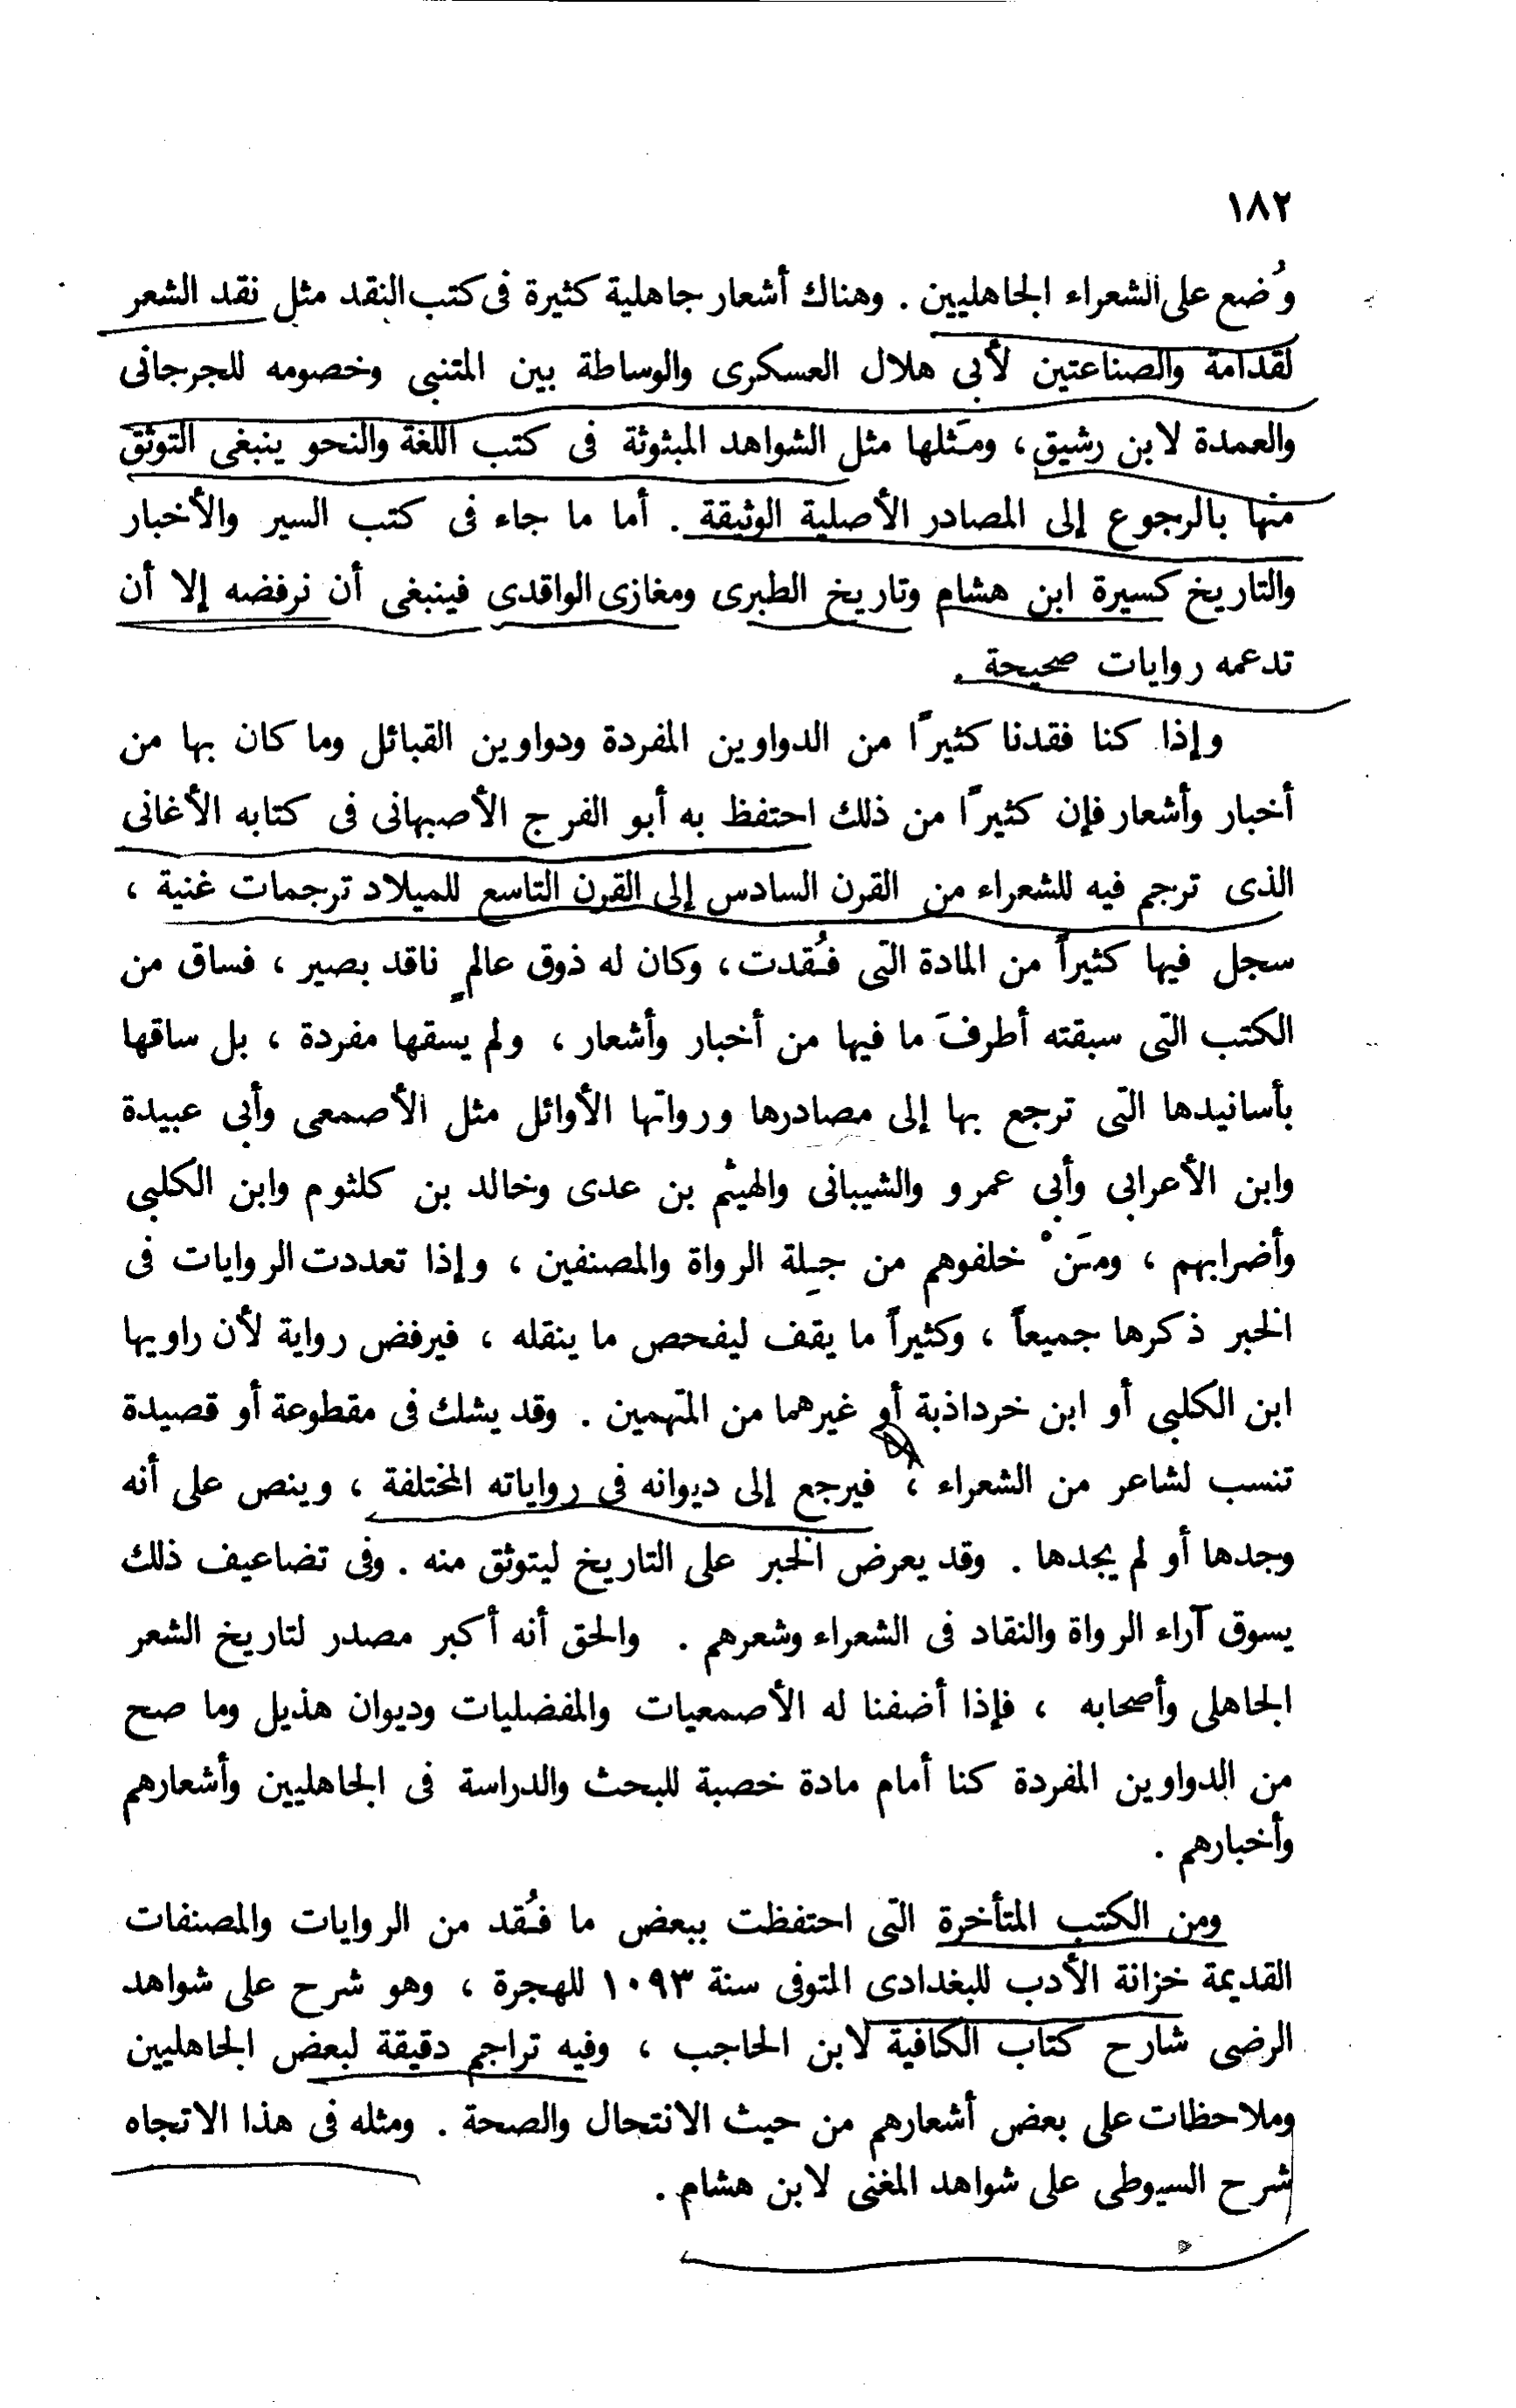 ١٨٢
وُضع على الشعراء الجاهليين . وهناك أشعار جاهلية كثيرة فى كتب النقد مثل نقد الشعر
لقدامة والصناعتين لأبى هلال العسكرى والوساطة بين المتنبى وخصومه للجرجانى
والعمدة لابن رشيق ، ومَثلها مثل الشواهد المبثوثة فى كتب اللغة والنحو ينبغى التوثق
منها بالرجوع إلى المصادر الأصلية الوثيقة . أما ما جاء فى كتب السير والأخبار
والتاريخ كسيرة ابن هشام وتاريخ الطبرى ومغازى الواقدى فينبغى أن نرفضه إلا أن
تدعمه روايات صحيحة .
وإذا كنا فقدنا كثيرًا من الدواوين المفردة ودواوين القبائل وما كان بها من
أخبار وأشعار فإن كثيرًا من ذلك احتفظ به أبو الفرج الأصبهانى فى كتابه الأغانى
الذى ترجم فيه للشعراء من القرن السادس إلى القرن التاسع للميلاد ترجمات غنية ،
سجل فيها كثيراً من المادة التى فُقدت ، وكان له ذوق عالمٍ ناقد بصير ، فساق من
الكتب التى سبقته أطرفَ ما فيها من أخبار وأشعار ، ولم يسقها مفردة ، بل ساقها
بأسانيدها التى ترجع بها إلى مصادرها ورواتها الأوائل مثل الأصمعى وأبى عبيدة
وابن الأعرابى وأبى عمرو والشيبانى والهيثم بن عدى وخالد بن كلثوم وابن الكلبى
وأضرابهم ، ومَنْ خلفوهم من جِلة الرواة والمصنفين ، وإذا تعددت الروايات فى
الخبر ذكرها جميعاً ، وكثيراً ما يقف ليفحص ما ينقله ، فيرفض رواية لأن راويها
ابن الكلبى أو ابن خرداذبة أو غيرهما من المتهمين . وقد يشك فى مقطوعة أو قصيدة
تنسب لشاعر من الشعراء ، فيرجع إلى ديوانه فى رواياته المختلفة ، وينص على أنه
وجدها أو لم يجدها . وقد يعرض الخبر على التاريخ ليتوثق منه . وفى تضاعيف ذلك
يسوق آراء الرواة والنقاد فى الشعراء وشعرهم . والحق أنه أكبر مصدر لتاريخ الشعر
الجاهلى وأصحابه ، فإذا أضفنا له الأصمعيات والمفضليات وديوان هذيل وما صح
من الدواوين المفردة كنا أمام مادة خصبة للبحث والدراسة فى الجاهليين وأشعارهم
وأخبارهم .
ومن الكتب المتأخرة التى احتفظت ببعض ما فُقد من الروايات والمصنفات
القديمة خزانة الأدب للبغدادى المتوفى سنة ١٠٩٣ للهجرة ، وهو شرح على شواهد
الرضى شارح كتاب الكافية لابن الحاجب ، وفيه تراجم دقيقة لبعض الجاهليين
وملاحظات على بعض أشعارهم من حيث الانتحال والصحة . ومثله فى هذا الاتجاه
شرح السيوطى على شواهد المغنى لابن هشام .